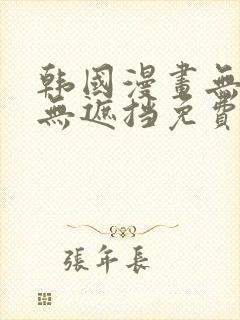 韩國漫畫無
無遮挡免費
張年長